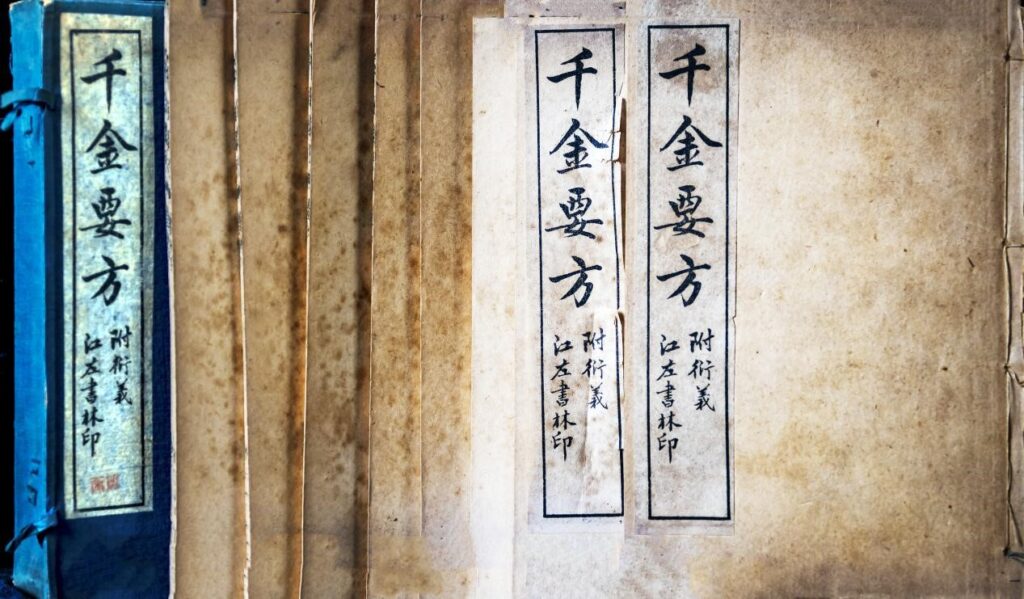 千金要方
附衍義
江左書林印
千金要方
附衍義
江左書林印
千金要方
附衍義
江左書林印